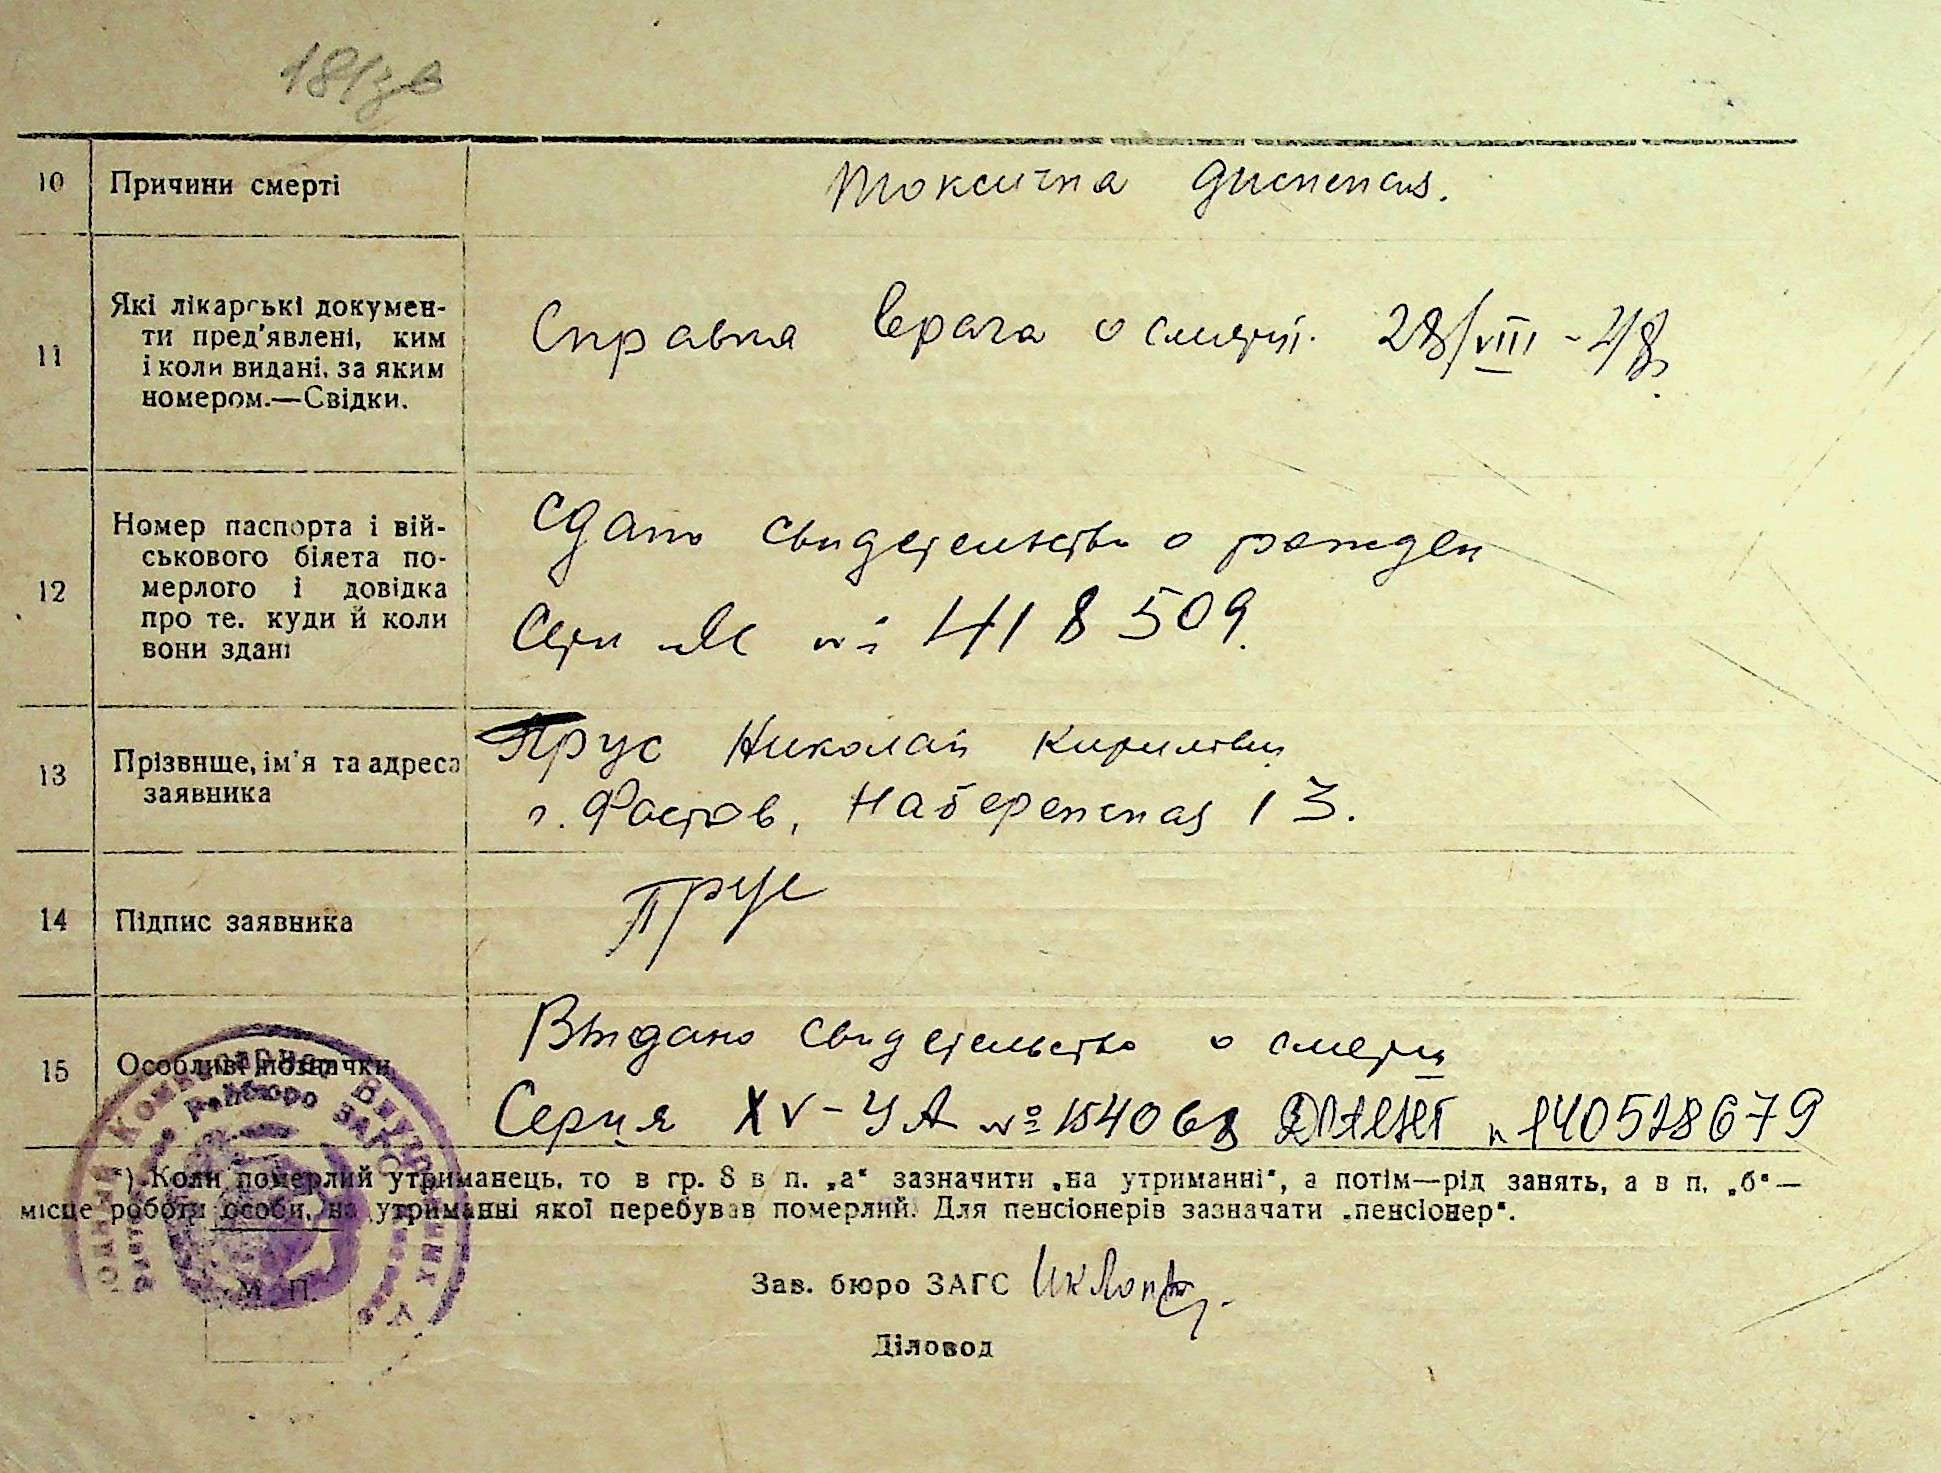 181зв
10 Причини смерті
Токсична диспепсия.
11 Які лікарські докумен-
ти пред'явлені, ким
і коли видані, за яким
номером.—Свідки.
Справка врача о смерти. 28/VIII-48.
12 Номер паспорта і вій-
ськового білета по-
мерлого і довідка
про те, куди й коли
вони здані
Сдано свидетельство о рожден
№ 418509.
13 Прізвище, ім'я та адреса
заявника
Прус Николай Кирилович
г. Фастов, Набережная 13.
14 Підпис заявника
Прус
15 Особливі позначки
Выдано свидетельство о смерти
Серия XV-УА № 154068 п 140528679
*) Коли померлий утриманець, то в гр. 8 в п. „а“ зазначити „на утриманні“, а потім—рід занять, а в п. „б“—
місце роботи особи, на утриманні якої перебував померлий. Для пенсіонерів зазначати „пенсіонер“.
М. П.
Райбюро ЗАГС
Зав. бюро ЗАГС
Діловод